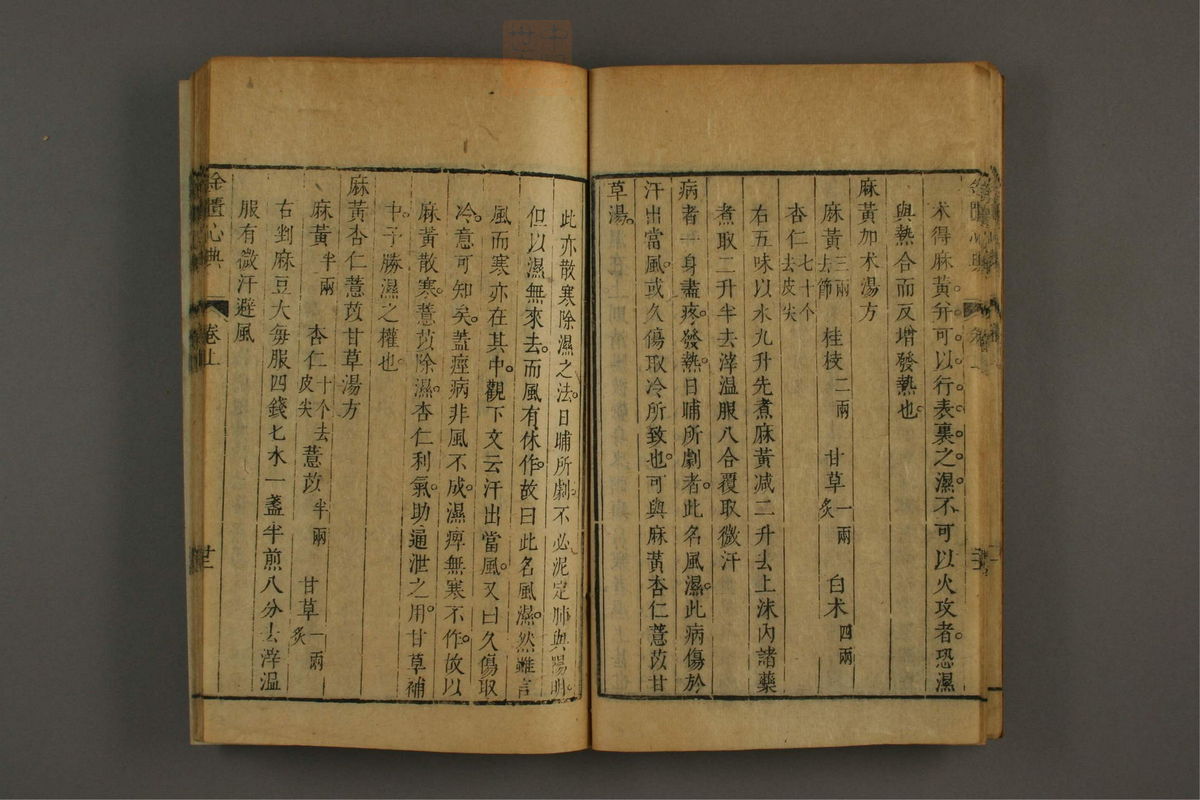 术得麻黃并可以行表裏之濕不可以火攻者恐濕
與熱合而反增發熱也
麻黃加术湯方
麻黃三兩去節 桂枝二兩 甘草一兩炙 白术四兩
杏仁七十个去皮尖
右五味以水九升先煮麻黃減二升去上沫內諸藥
煮取二升半去滓溫服八合覆取微汗
病者一身盡疼發熱日晡所劇者此名風濕此病傷於
汗出當風或久傷取冷所致也可與麻黃杏仁薏苡甘
草湯
此亦散寒除濕之法日晡所劇不必泥定肺與陽明
但以濕無來去而風有休作故曰此名風濕然雖言
風而寒亦在其中觀下文云汗出當風又曰久傷取
冷意可知矣蓋痙病非風不成濕痺無寒不作故以
麻黃散寒薏苡除濕杏仁利氣助通泄之用甘草補
中予勝濕之權也
麻黃杏仁薏苡甘草湯方
麻黃半兩 杏仁十个去皮尖 薏苡半兩 甘草一兩炙
右剉麻豆大每服四錢匕水一盞半煎八分去滓溫
服有微汗避風
金匱心典 卷上 廿